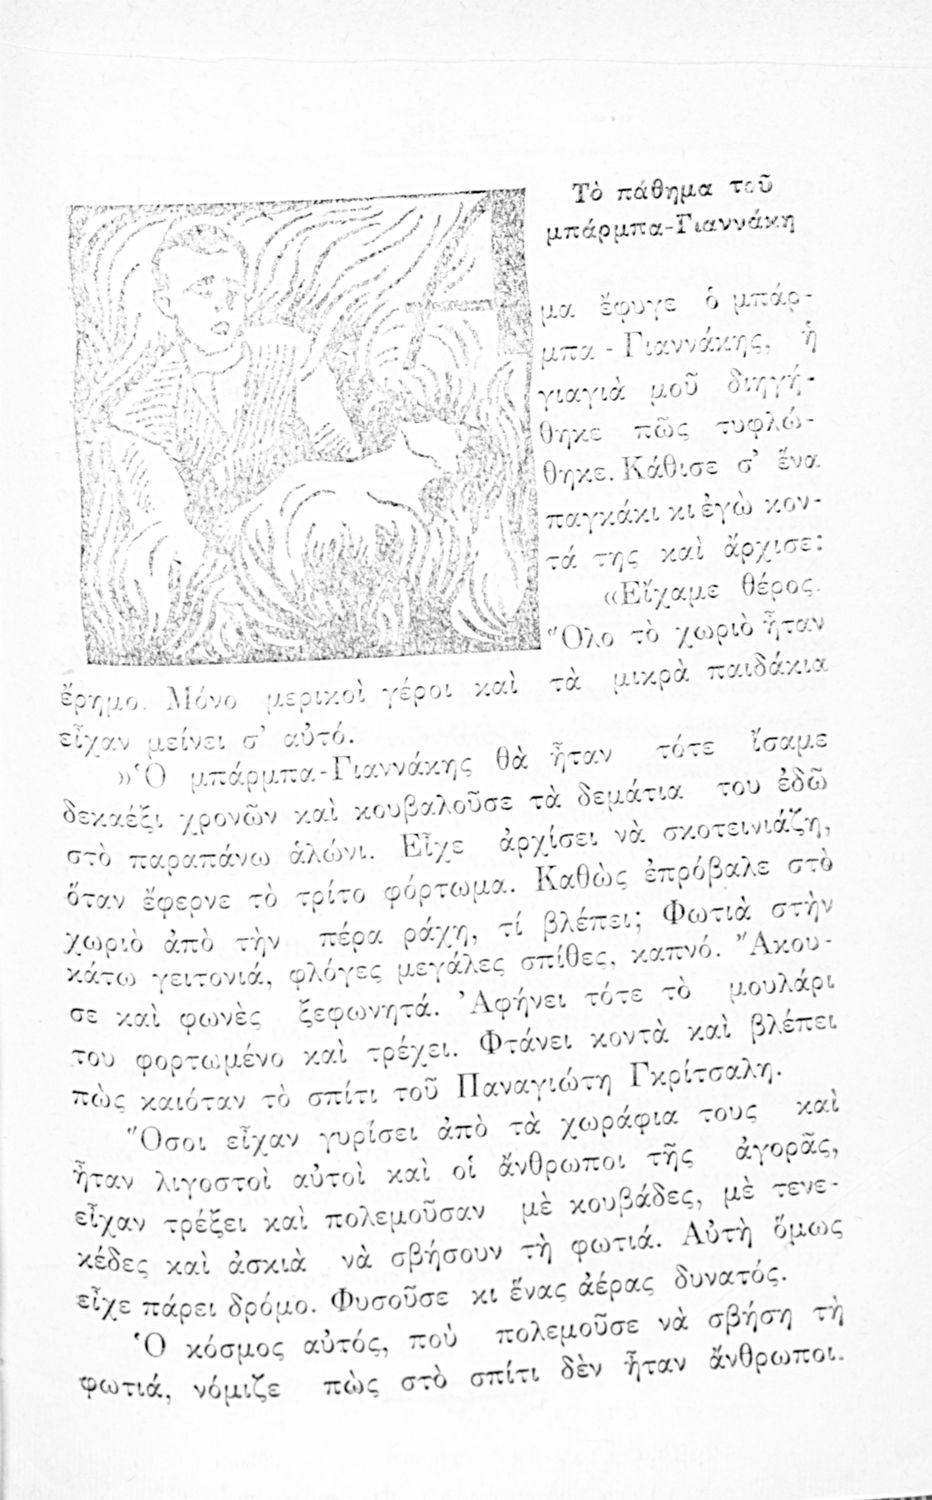 Τὸ πάθημα τοῦ
μπάρμπα-Γιαννάκη
μα ἔφυγε ὁ μπάρ-
μπα - Γιαννάκης, ἡ
γιαγιὰ μοῦ διηγή-
θηκε πῶς τυφλώ-
θηκε. Κάθισε σ’ ἕνα
παγκάκι κι ἐγὼ κον-
τά της καὶ ἄρχισε:
«Εἴχαμε θέρος.
Ὅλο τὸ χωριὸ ἦταν
ἔρημο. Μόνο μερικοὶ γέροι καὶ τὰ μικρὰ παιδάκια
εἶχαν μείνει σ’ αὐτό.
»Ὁ μπάρμπα-Γιαννάκης θὰ ἦταν τότε ἴσαμε
δεκαέξι χρονῶν καὶ κουβαλοῦσε τὰ δεμάτια του ἐδῶ
στὸ παραπάνω ἁλώνι. Εἶχε ἀρχίσει νὰ σκοτεινιάζῃ,
ὅταν ἔφερνε τὸ τρίτο φόρτωμα. Καθὼς ἐπρόβαλε στὸ
χωριὸ ἀπὸ τὴν πέρα ράχη, τί βλέπει; Φωτιὰ στὴν
κάτω γειτονιά, φλόγες μεγάλες σπίθες, καπνό. Ἄκου-
σε καὶ φωνὲς ξεφωνητά. Ἀφήνει τότε τὸ μουλάρι
του φορτωμένο καὶ τρέχει. Φτάνει κοντὰ καὶ βλέπει
πὼς καιόταν τὸ σπίτι τοῦ Παναγιώτη Γκρίτσαλη.
Ὅσοι εἶχαν γυρίσει ἀπὸ τὰ χωράφια τους καὶ
ἦταν λιγοστοὶ αὐτοὶ καὶ οἱ ἄνθρωποι τῆς ἀγορᾶς,
εἶχαν τρέξει καὶ πολεμοῦσαν μὲ κουβάδες, μὲ τενε-
κέδες καὶ ἀσκιὰ νὰ σβήσουν τὴ φωτιά. Αὐτὴ ὅμως
εἶχε πάρει δρόμο. Φυσοῦσε κι ἕνας ἀέρας δυνατός.
Ὁ κόσμος αὐτός, ποὺ πολεμοῦσε νὰ σβήση τὴ
φωτιά, νόμιζε πὼς στὸ σπίτι δὲν ἦταν ἄνθρωποι.